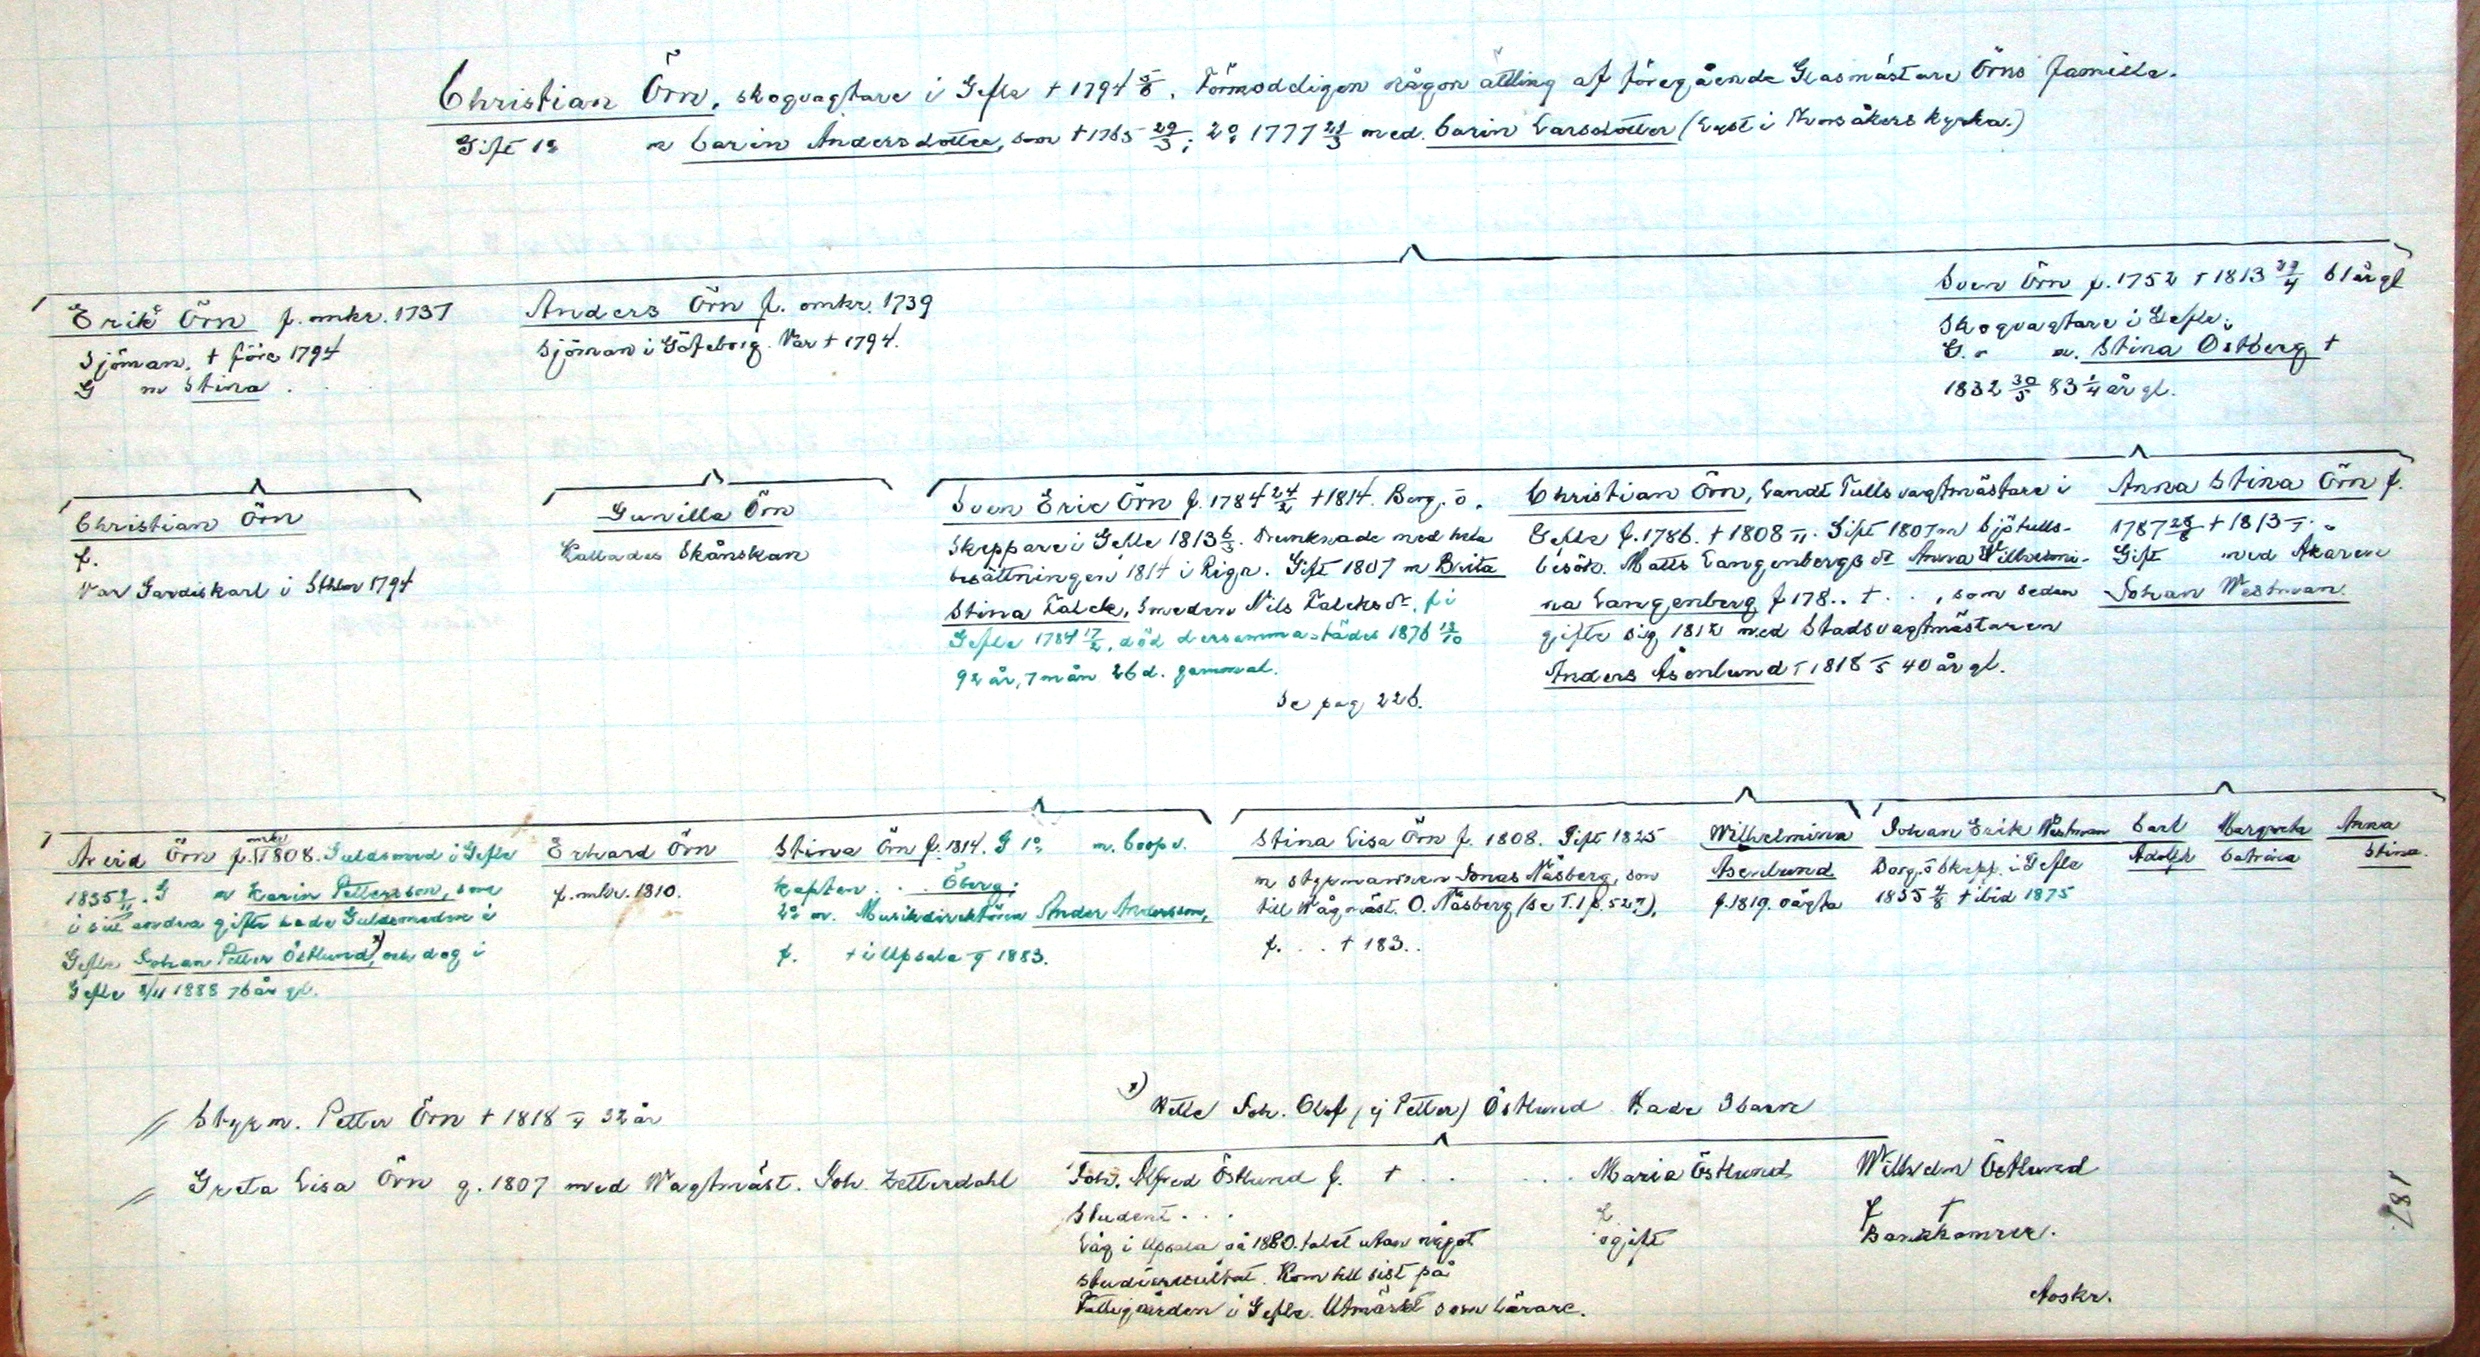 Christian Örn, skogvagtare i Gefle † 1794 5/8. Förmoddigen någon ättling af föregående Glasmästare Örns familla.
Gift 1o m Carin Andersdotter, som † 1765 29/3; 2o 1777 23/3 med Carin Larsdotter (Lyst i Thorsåkers kyrka.)
Erik Örn f. omkr. 1737
Sjöman. † före 1794
G m Stina .
Anders Örn f. omkr. 1739
Sjöman i Göteborg. Var † 1794.
Sven Örn f. 1752 † 1813 29/4 61 år gl
Skogvagtare i Gefle.
G. m. Stina Östberg †
1832 30/5 83 1/4 år gl.
Christian Örn
f.
Var Gardiskarl i Sthlm 1794
Gunilla Örn
Kallades Skånskan
Sven Eric Örn f. 1784 24/2 † 1814. Borg. o.
Skeppare i Gefle 1813 6/3. Drunknade med hela
besättningen 1814 i Riga. Gift 1807 m Brita
Stina Falck, Smeden Nils Falcks dr, f i
Gefle 1784 17/2, död dersammastädes 1876 13/10
92 år, 7 mån 26 d. gammal.
Se pag 226.
Christian Örn, Landt Tulls vagtmästare i
Gefle f. 1786. † 1808 –/11. Gift 1807 m Sjötulls-
besök. Matts Langenbergs dr Anna Wilhelmi-
na Langenberg f 178.. † . . , som sedan
gifte sig 1812 med Stadsvagtmästaren
Anders Åsenlund † 1818 –/5 40 år gl.
Anna Stina Örn f.
1787 28/8 † 1813 –/5.
Gift med Åkaren
Johan Westman.
Arvid Örn f. omkr 1808. Guldsmed i Gefle
1835 2/11. G m Karin Pettersson, som
i sitt andra gifte hade Guldsmeden i
Gefle Johan Petter Östlund x), och dog i
Gefle 8/11 1888 76 år gl.
Erhard Örn
f. mkr. 1810.
Stina Örn f. 1814. G 1o m. Coopv.
kapten . . Öberg;
2o m. Musikdirektören Ander Andersson,
f. † i Upsala –/9 1883.
Stina Lisa Örn f. 1808. Gift 1825
m styrmannen Jonas Näsberg, son
till Vågmäst. O. Näsberg (Se T. 1 p. 527),
f. . . † 183..
Wilhelmina
Åsenlund
f. 1819. oägta
Johan Erik Westman
Borg. o Skepp. i Gefle
1855 4/8 † ibid 1875
Carl
Adolph
Margreta
Catrina
Anna
Stina.
// Styrm. Petter Örn † 1818 –/4 32 år
// Greta Lisa Örn g. 1807 med Vagtmäst. Joh. Zetterdahl
x) Hette Joh. Olof (ej Petter) Östlund Hade 3 barn
Joh. Alfred Östlund f. † . .
Student . . .
Låg i Upsala på 1860. talet utan något
studieresultat. Kom till sist på
Fattigården i Gefle. Utmärkt som lärare.
. . . Maria Östlund
f.
ogift
Wilhelm Östlund
f †
Bankkamrer.
Aoskr.
187.